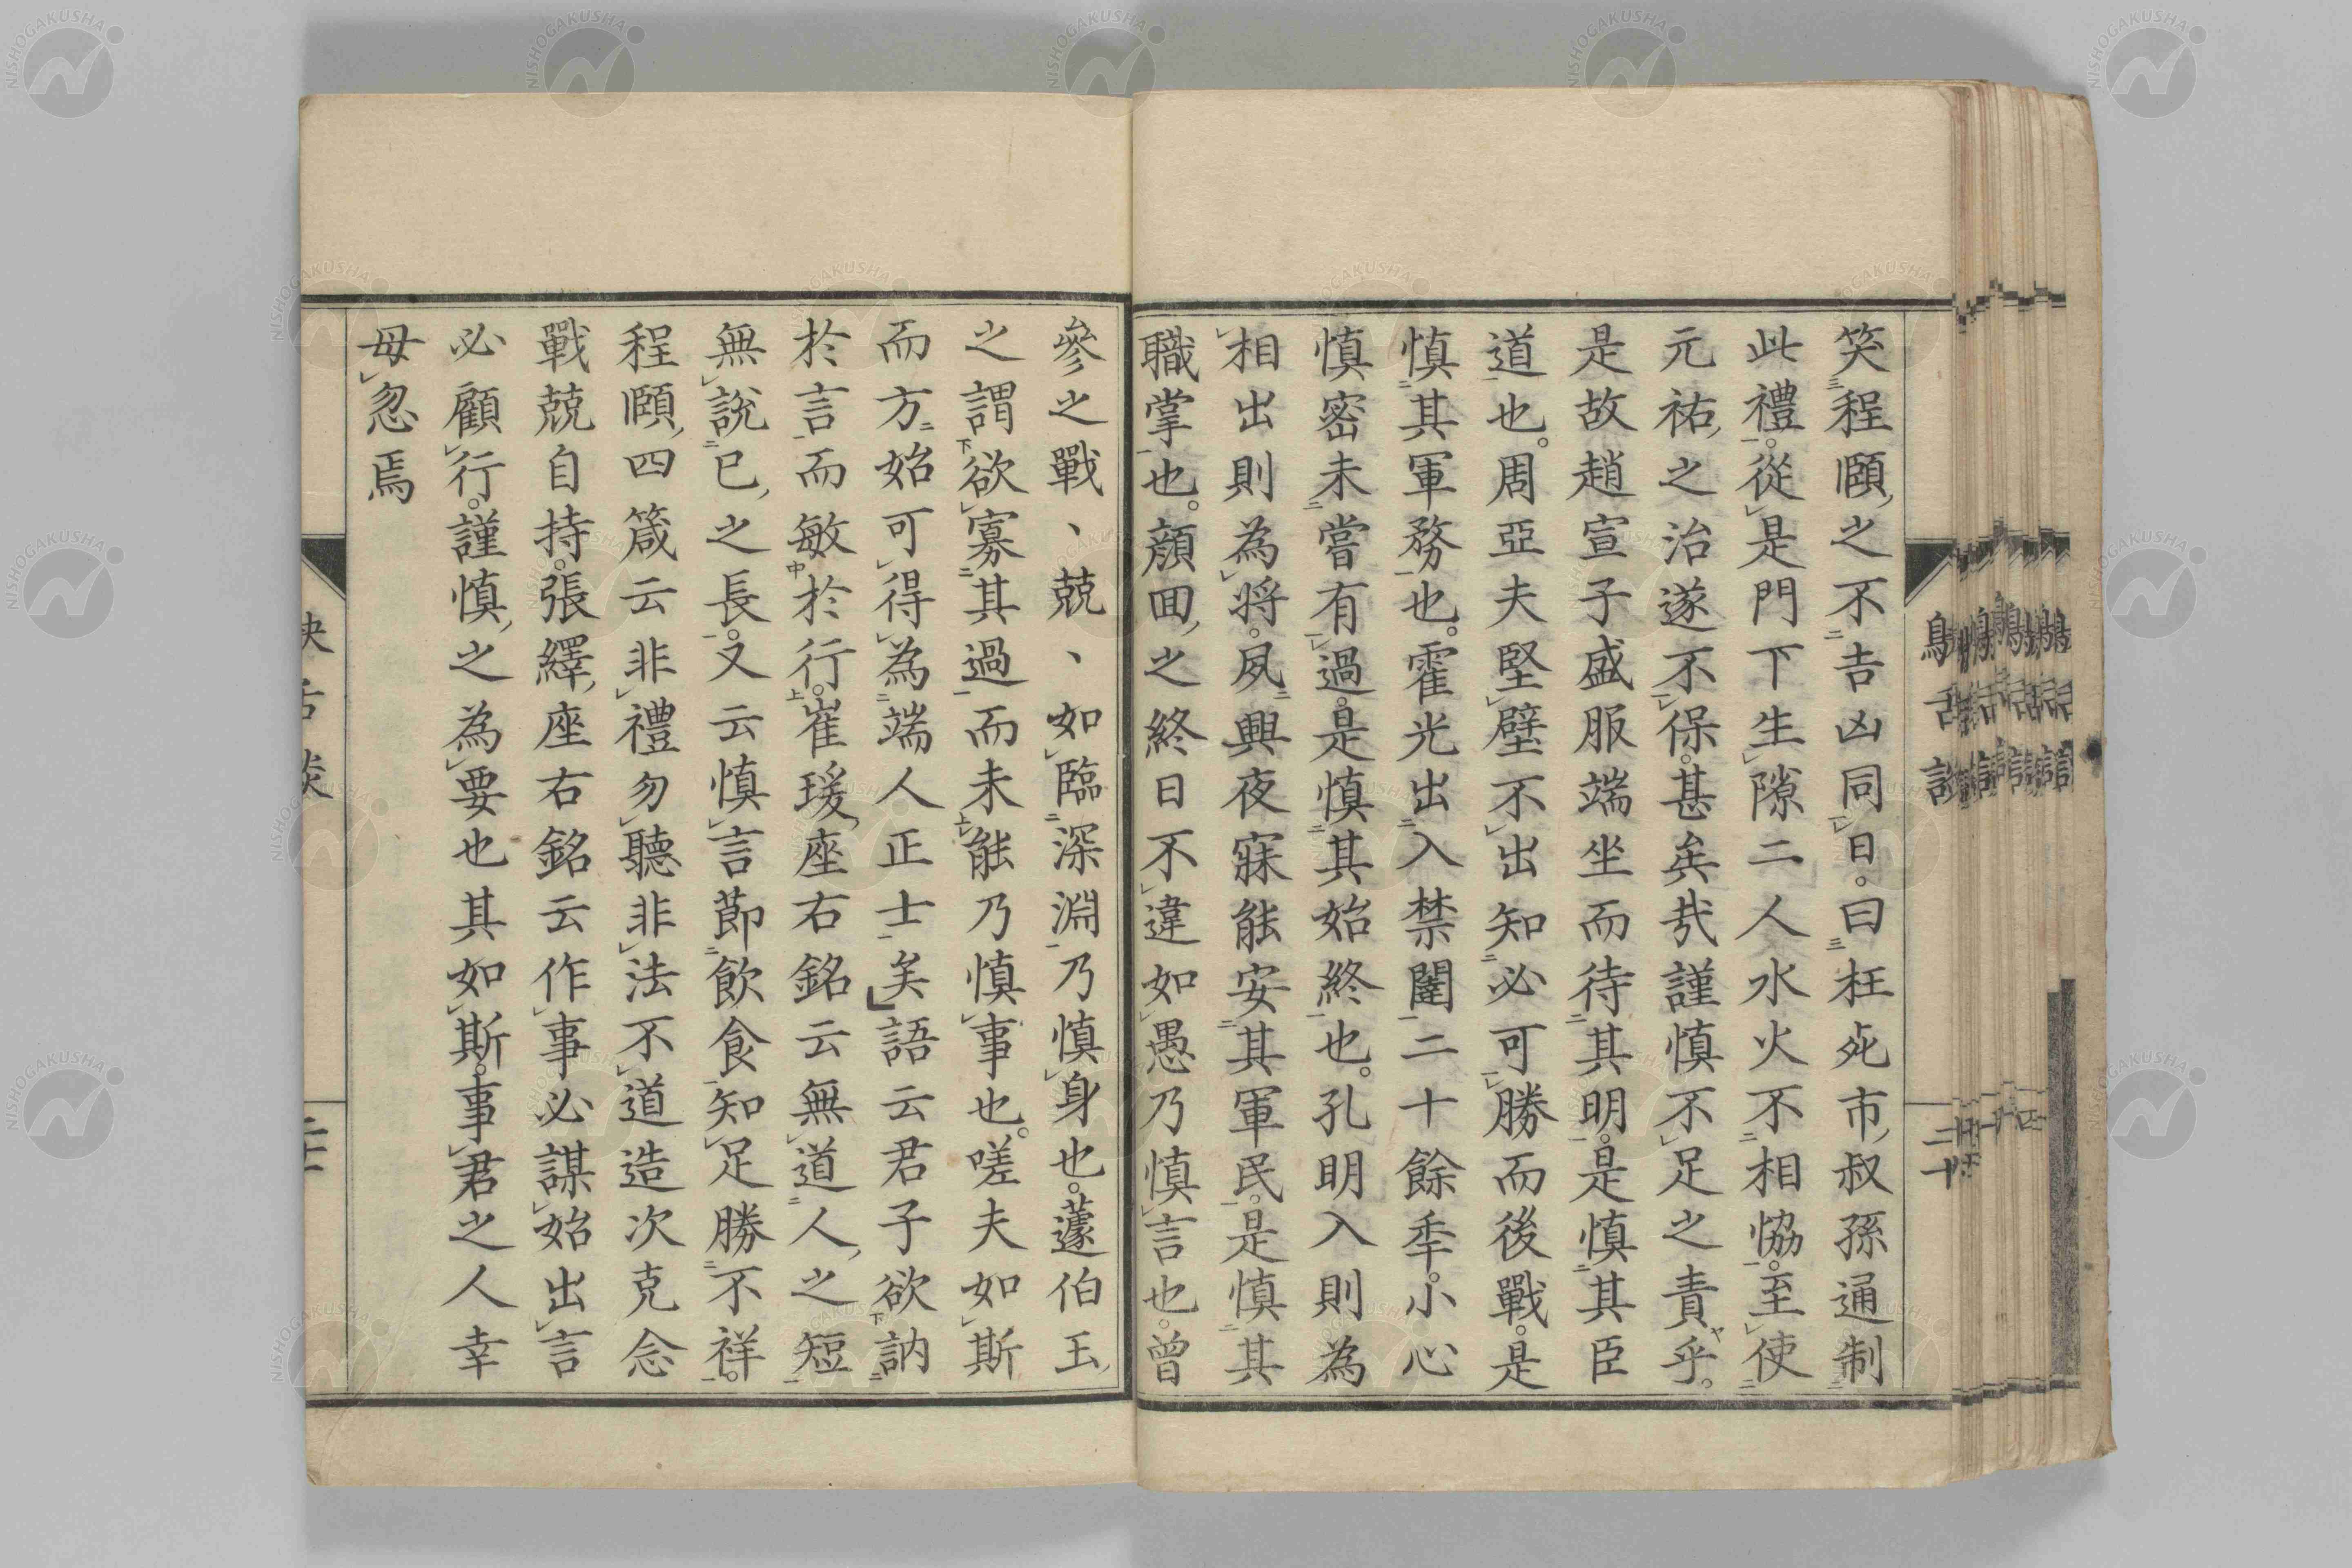 笑程頤之不吉凶同日。曰枉死市叔孫通制
此禮。從是門下生隙二人水火不相恊。至使
元祐之治遂不保。甚矣哉謹慎不足之責乎。
是故趙宣子盛服端坐而待其明。是慎其臣
道也。周亞夫堅壁不出知必可勝而後戰。是
慎其軍務也。霍光出入禁闥二十餘季。小心
慎密未嘗有過。是慎其始終也。孔明入則為
相出則為將。夙興夜寐能安其軍民。是慎其
職掌也。顔回之終日不違如愚乃慎言也。曾
參之戰、兢、如臨深淵乃慎身也。蘧伯玉
之謂欲寡其過而未能乃慎事也。嗟夫如斯
而方始可得為端人正士矣」語云君子欲訥
於言而敏於行。崔瑗座右銘云無道人之短
無說已之長。又云慎言節飲食知足勝不祥。
程頤四箴云非禮勿聽非法不道造次克念
戰兢自持。張繹座右銘云作事必謀始出言
必顧行。謹慎之為要也其如斯。事君之人幸
毋忽焉
二十
NISHOGAKUSHA